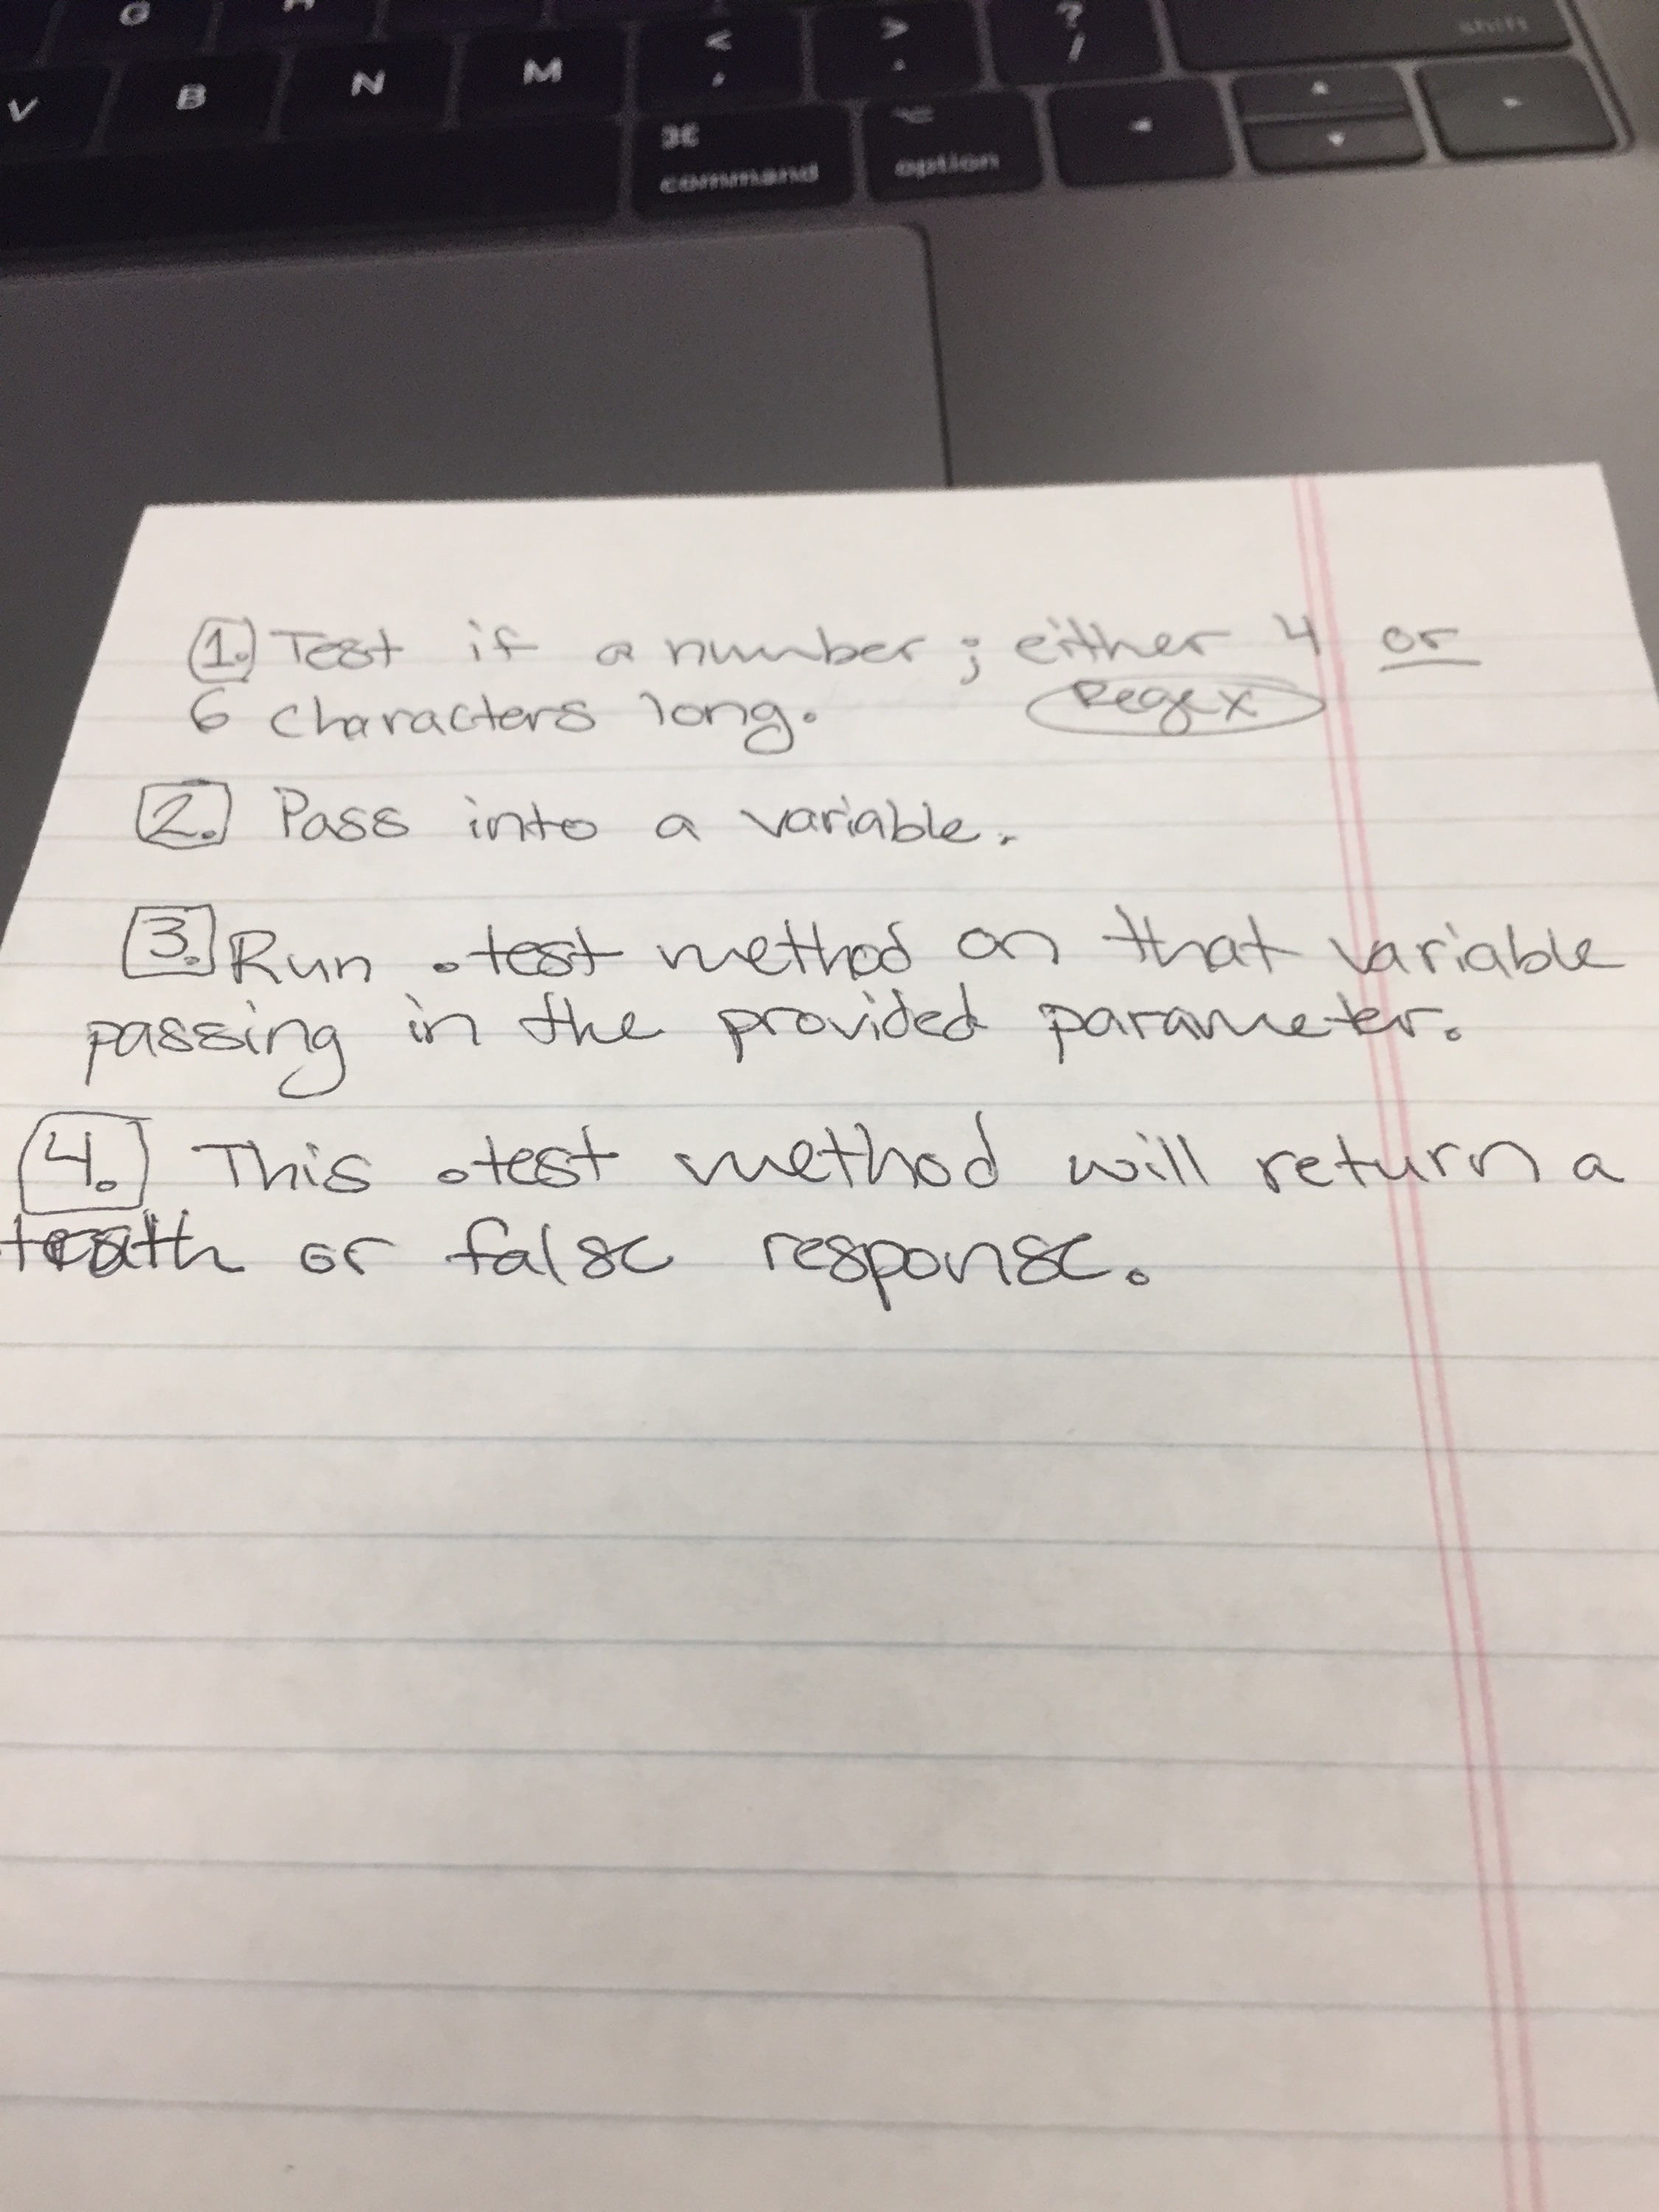 G H
V B N M < , > . ? / shift
⌘ command ⌥ option ◀ ▲ ▼ ►
1. Test if a number ; either 4 or
6 characters long. Regex
2. Pass into a variable.
3. Run .test method on that variable
passing in the provided parameter.
4. This .test method will return a
or false response.